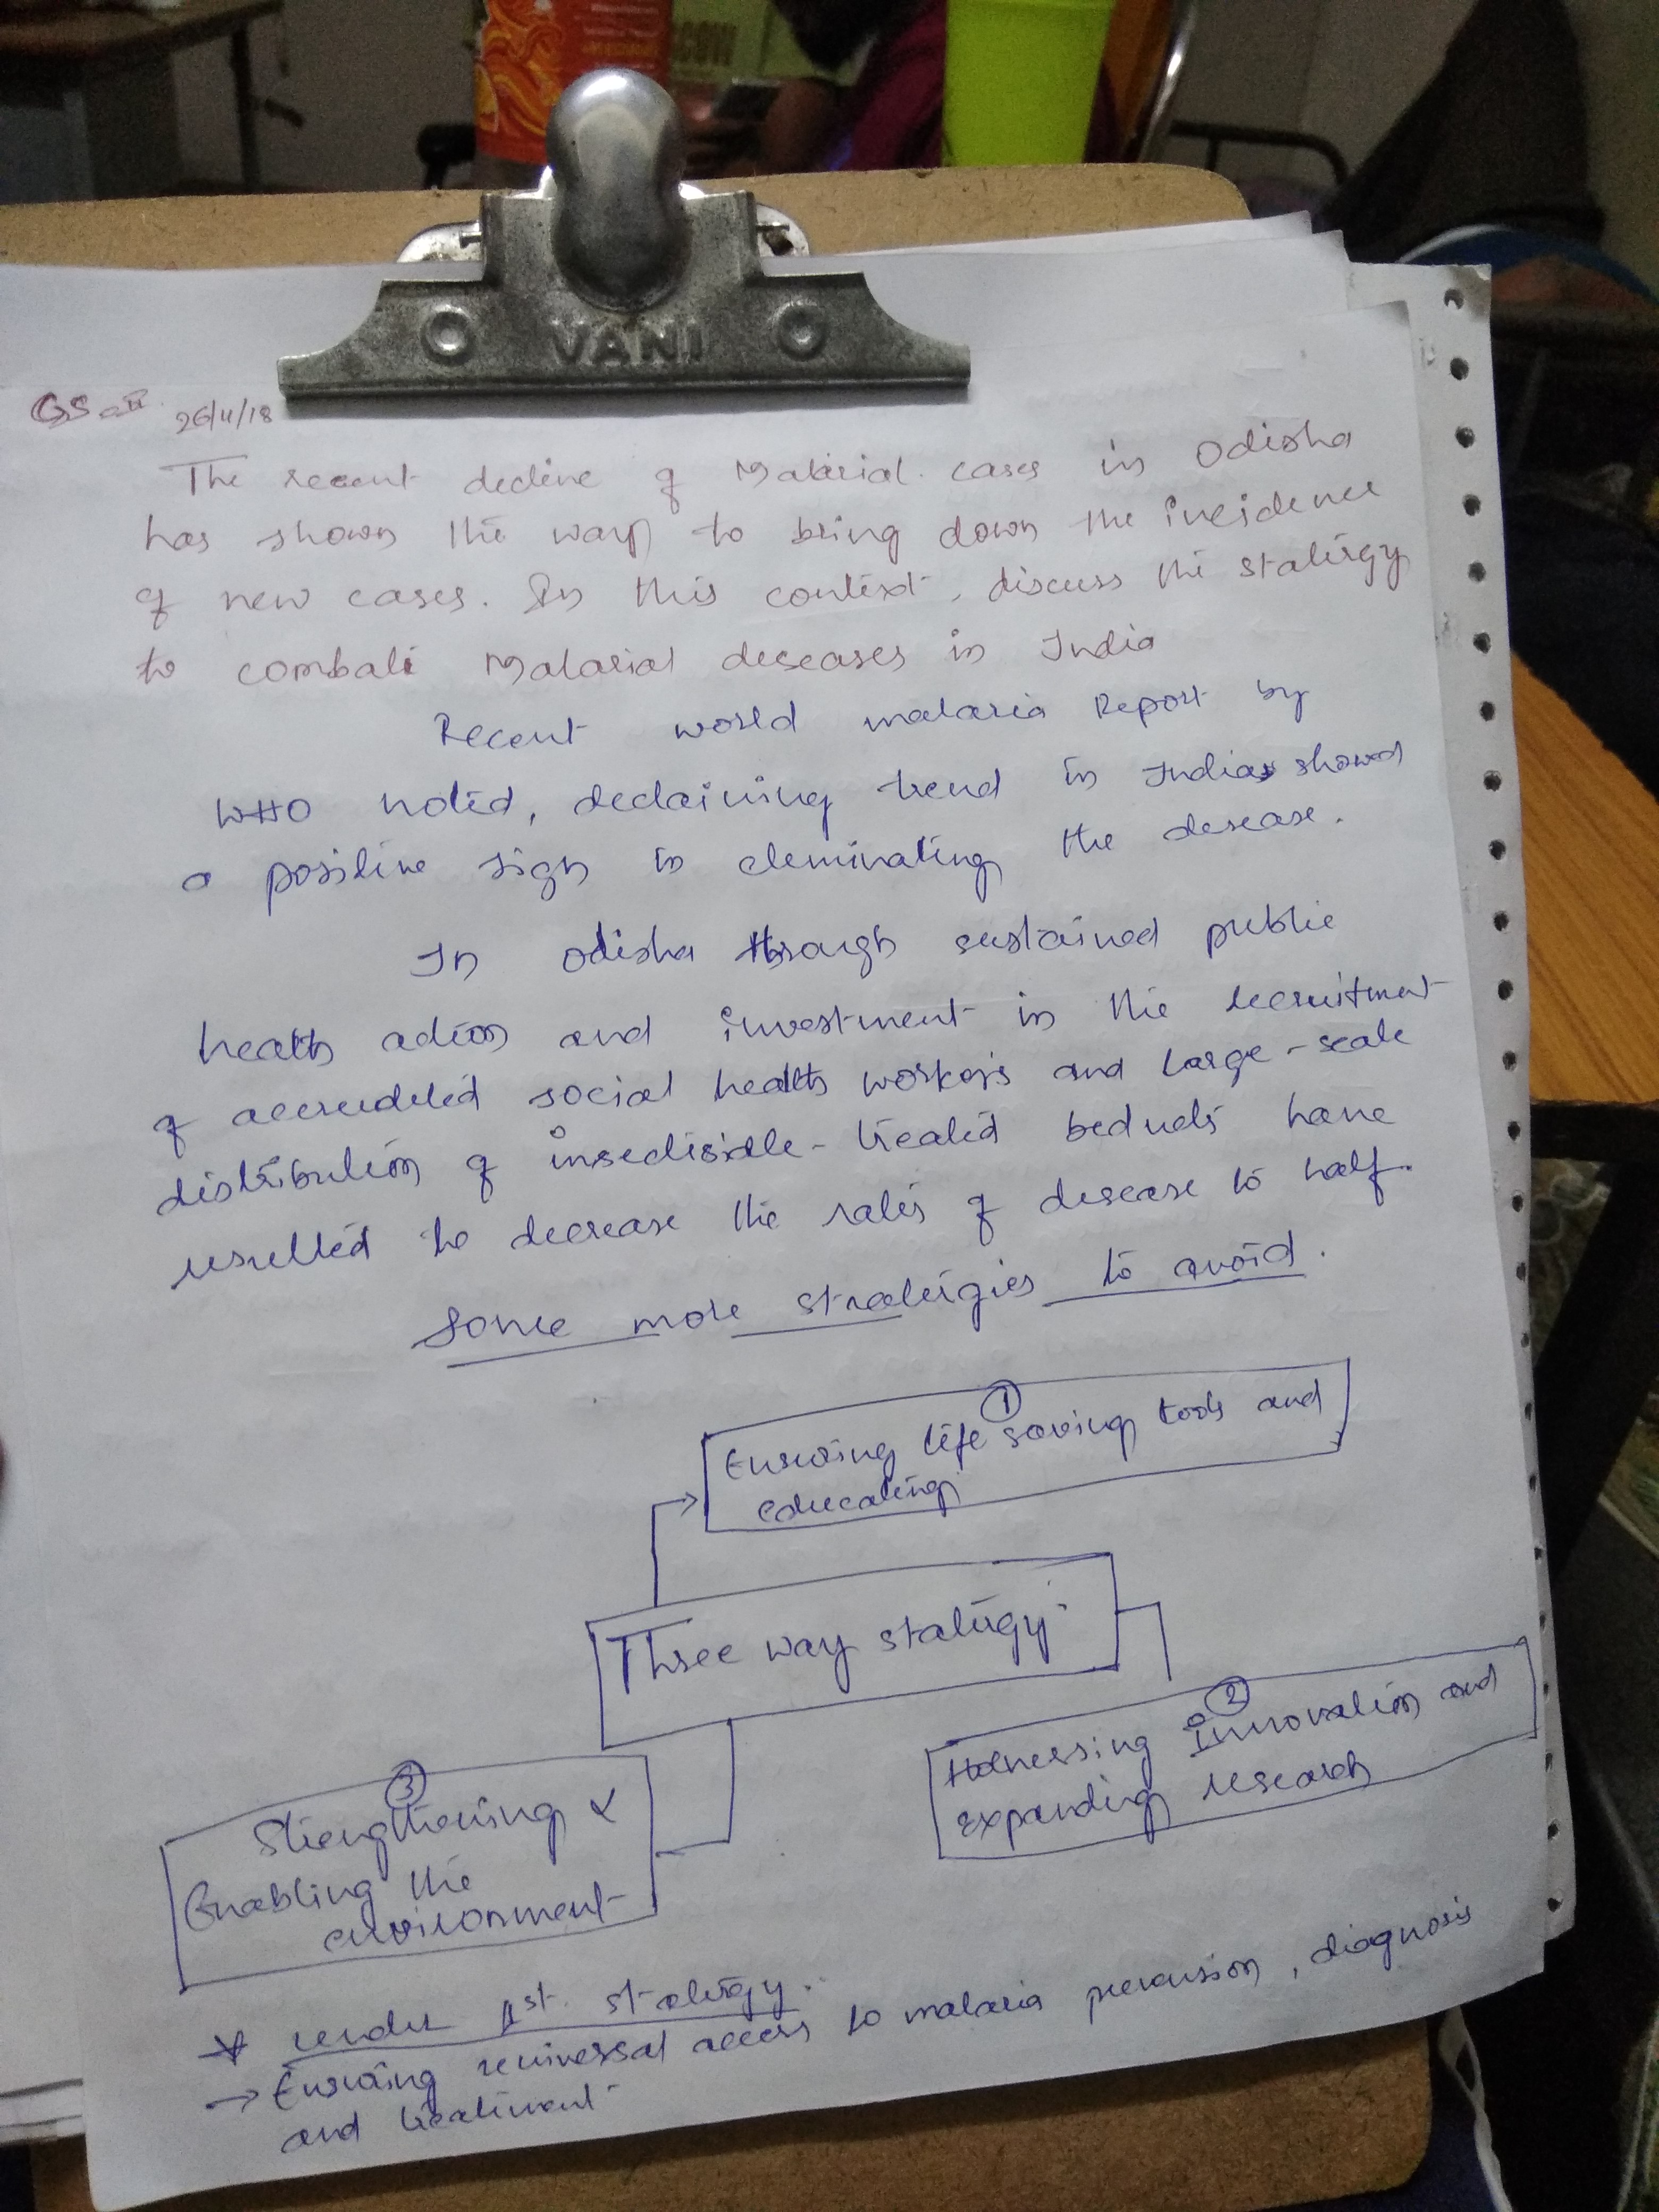 COW
VANI
GS-II 26/4/18
The recent decline of Malarial cases in Odisha
has shown the way to bring down the incidence
of new cases. In this context, discuss the statergy
to combate Malarial deseases in India
Recent world malaria Report by
WHO noted, declaining trend in India showed
a positive sign in eleminating the desease.
In Odisha through sustained public
health action and investment in the recruitment
of accrediated social health workers and large-scale
distribution of insectiside-treated bednets have
resulted to decrease the rates of desease to half.
Some more stratergies to avoid.
①
Ensuring life saving tools and
educating
Three way statergy
②
Harnessing Innovation and
expanding research
③
Strengthening &
Enabling the
environment
* under 1st statergy.
→ Ensuring universal access to malaria prevension, diagnosis
and treatment